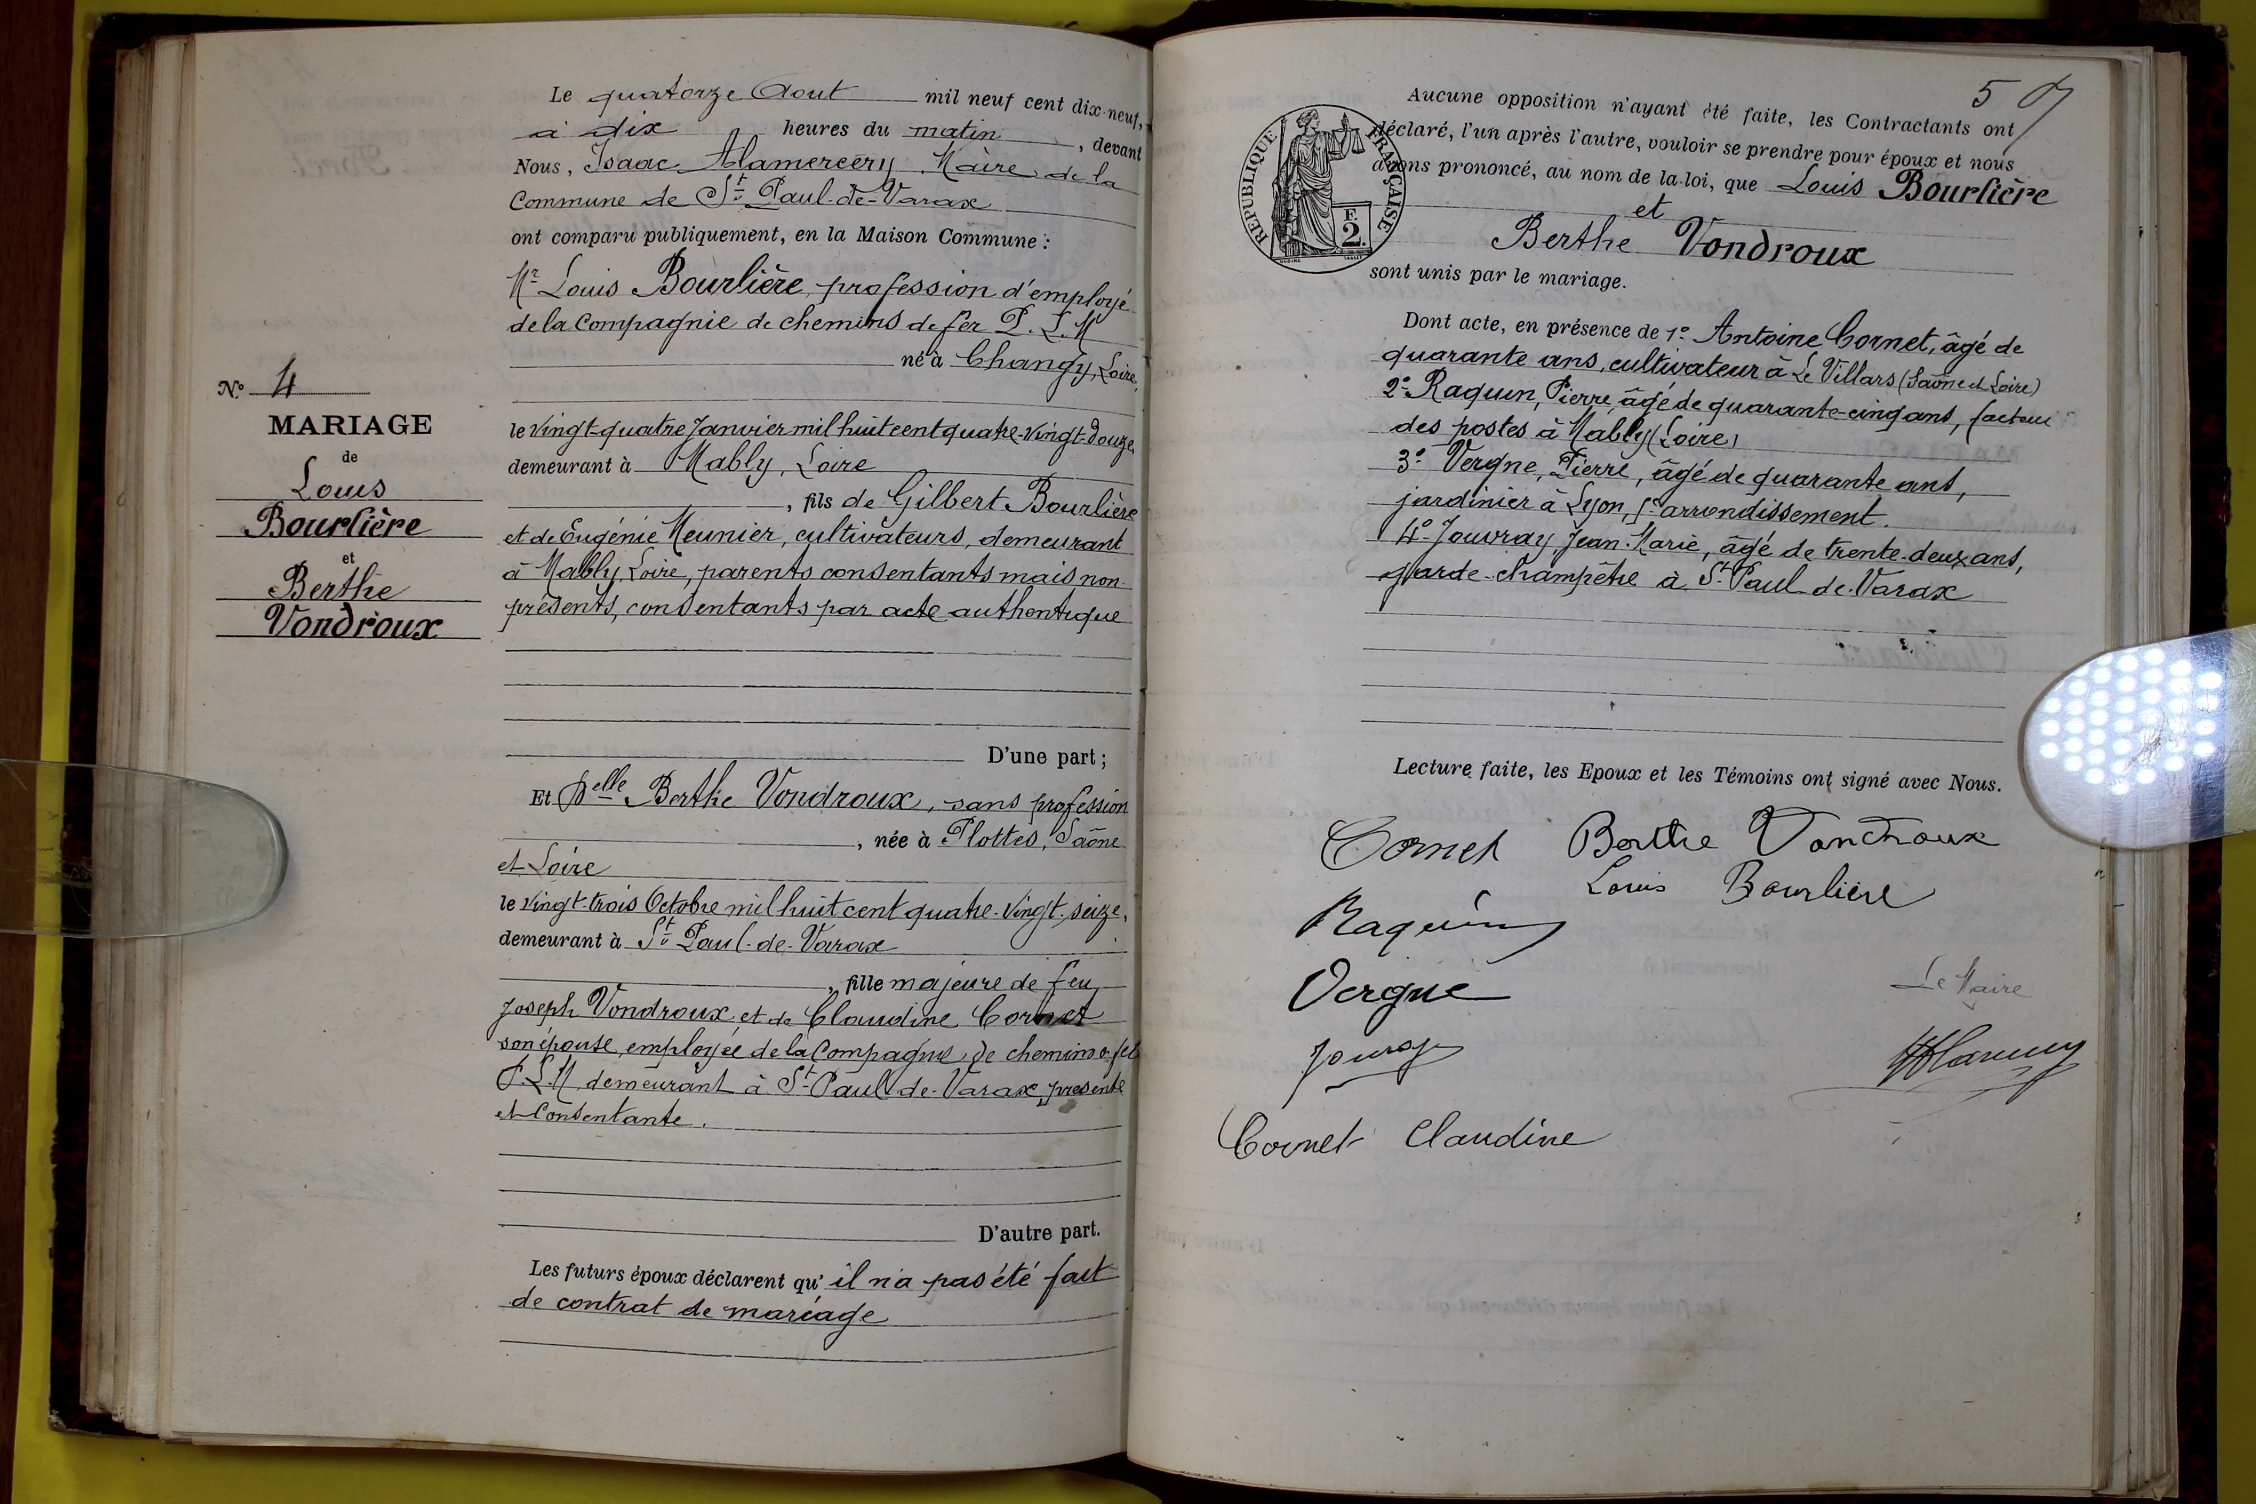 Le quatorze Aout mil neuf cent dix-neuf,
à dix heures du matin, devant
Nous, Isaac Alamercery Maire de la
Commune de St Paul-de-Varax
ont comparu publiquement, en la Maison Commune :
Mr Louis Bourlière, profession d'employé
de la Compagnie de chemins de fer P. L. M
né à Changy, Loire,
le vingt-quatre Janvier mil huit cent quatre-vingt-douze,
demeurant à Mably, Loire
, fils de Gilbert Bourlière
et de Eugénie Meunier, cultivateurs, demeurant
à Mably, Loire, parents consentants mais non-
présents, consentants par acte authentique
D'une part ;
Nº 4
MARIAGE
de
Louis
Bourlière
et
Berthe
Vondroux
Et Delle Berthe Vondroux, sans profession
, née à Plottes, Saône
et Loire
le vingt-trois Octobre mil huit cent quatre-vingt-seize,
demeurant à St Paul-de-Varax
, fille majeure de feu
Joseph Vondroux et de Claudine Cornet
son épouse, employée de la Compagnie de chemins de fer
P. L. M demeurant à St Paul de-Varax, présente
et Consentante.
D'autre part.
Les futurs époux déclarent qu' il n'a pas été fait
de contrat de mariage
5
RÉPUBLIQUE FRANÇAISE
F.
2.
Aucune opposition n'ayant été faite, les Contractants ont
déclaré, l'un après l'autre, vouloir se prendre pour époux et nous
avons prononcé, au nom de la loi, que Louis Bourlière
et
Berthe Vondroux
sont unis par le mariage.
Dont acte, en présence de 1º Antoine Cornet, âgé de
quarante ans, cultivateur à Le Villars (Saône et Loire)
2º Raquin, Pierre, âgé de quarante-cinq ans, facteur
des postes à Mably (Loire)
3º Vergne, Pierre, âgé de quarante ans,
jardinier à Lyon, 5e arrondissement.
4º Jouvray, Jean-Marie, âgé de trente-deux ans,
garde-champêtre à St Paul de-Varax
Lecture faite, les Epoux et les Témoins ont signé avec Nous.
Cornet Berthe Vondroux
Louis Bourlière
Raquin
Vergne
Le Maire
Jouvray
Cornet Claudine